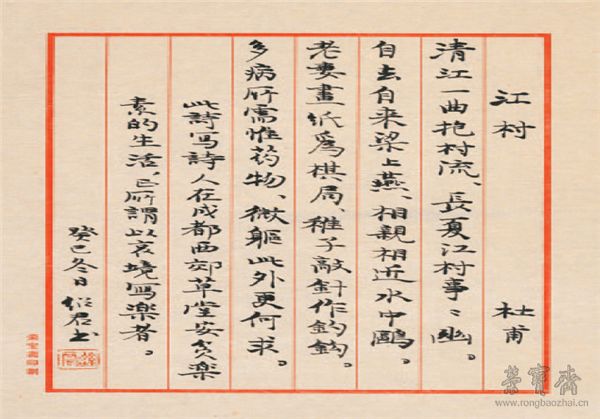 江村 杜甫
清江一曲抱村流、長夏江村事〻幽。
自去自来梁上燕、相親相近水中鷗。
老妻畫紙爲棋局、稚子敲針作釣鈎。
多病所需惟药物、微軀此外更何求。
此詩寫詩人在成都西郊草堂安贫楽
素的生活,正所謂以哀境寫楽者。
癸巳冬日
榮寶齋
www.rongbaozhai.cn